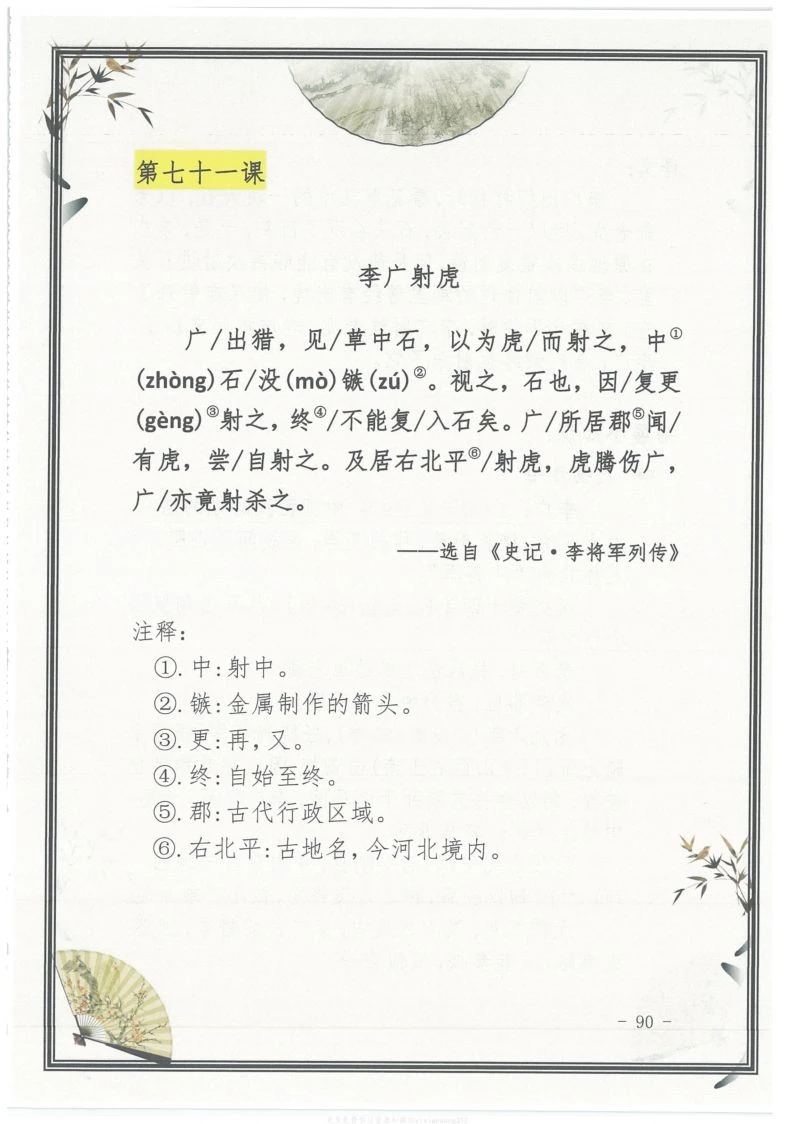 第七十一课
李广射虎
广/出猎，见/草中石，以为虎/而射之，中①
(zhòng)石/没(mò)镞(zú)②。视之，石也，因/复更
(gèng)③射之，终④/不能复/入石矣。广/所居郡⑤闻/
有虎，尝/自射之。及居右北平⑥/射虎，虎腾伤广，
广/亦竟射杀之。
——选自《史记·李将军列传》
注释：
①.中：射中。
②.镞：金属制作的箭头。
③.更：再，又。
④.终：自始至终。
⑤.郡：古代行政区域。
⑥.右北平：古地名，今河北境内。
- 90 -